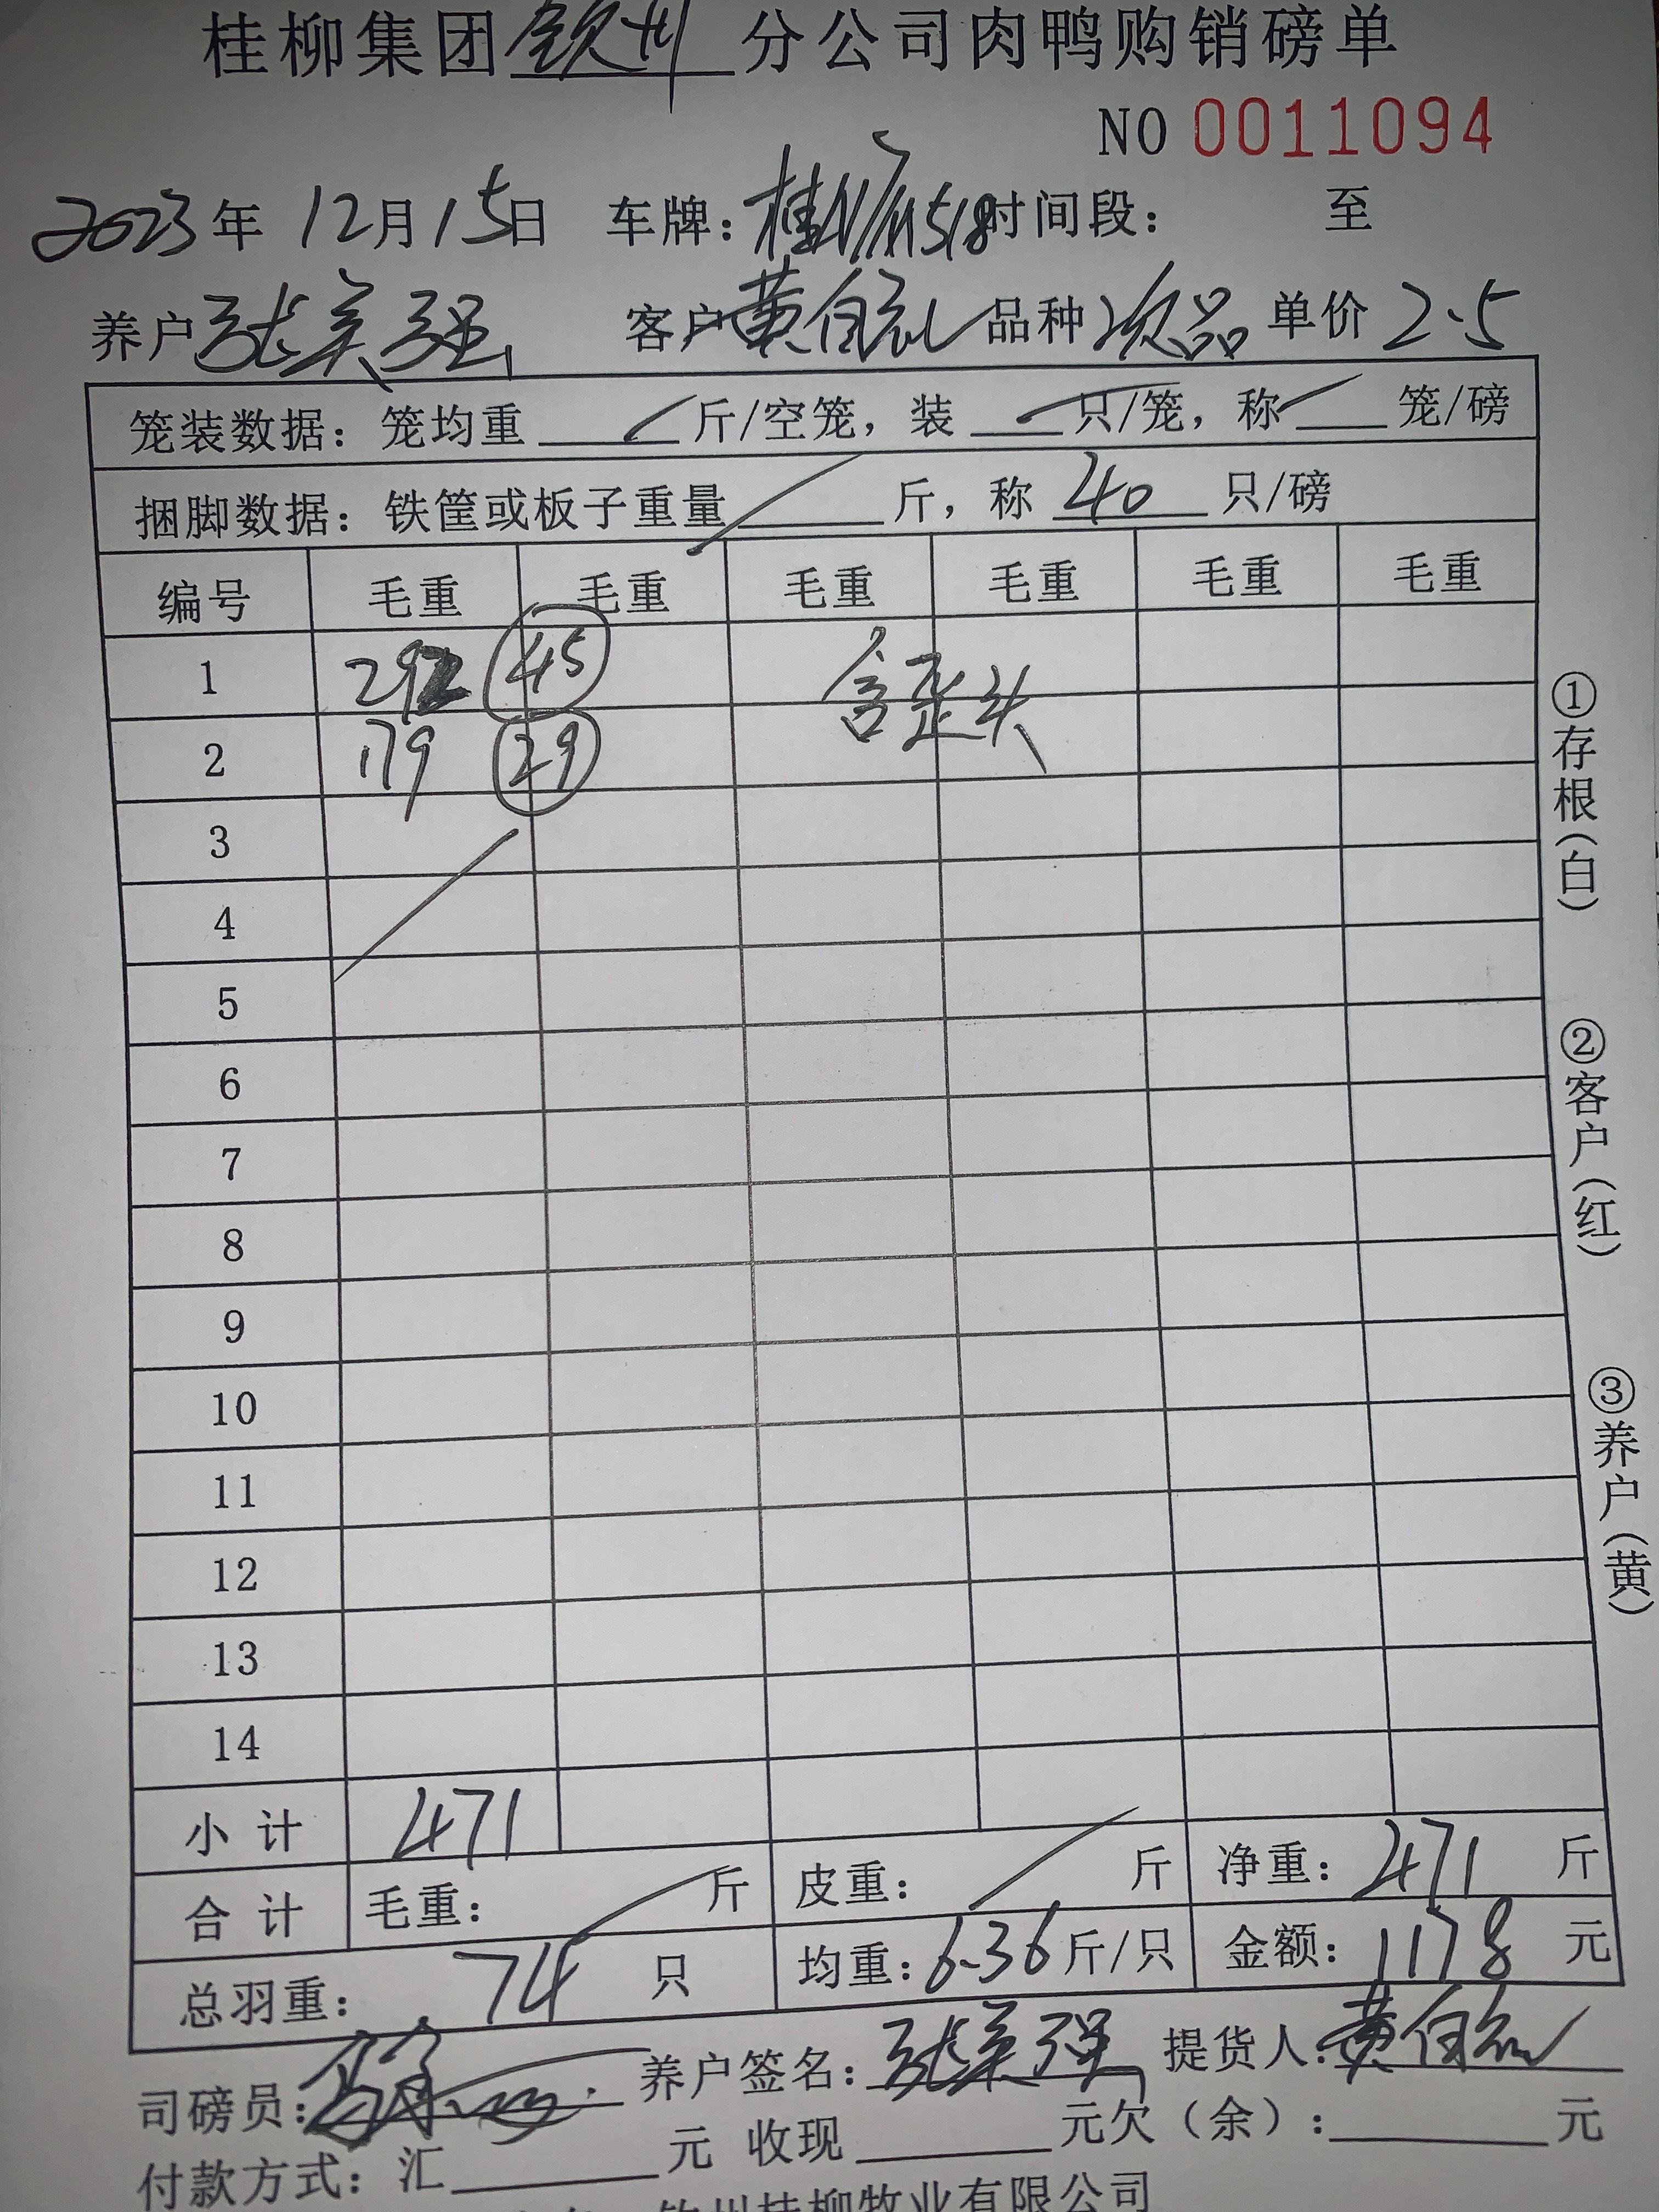 桂柳集团钦州分公司肉鸭购销磅单
NO 0011094
2023年12月15日 车牌：桂N 518时间段： 至
养户张美强 客户黄 品种次品 单价2.5
笼装数据：笼均重 斤/空笼，装 只/笼，称 笼/磅
捆脚数据：铁筐或板子重量 斤，称 40 只/磅
编号 毛重 毛重 毛重 毛重 毛重 毛重
1 292 45 含歪头
2 179 29
3
4
5
6
7
8
9
10
11
12
13
14
小计 471
合计 毛重： 斤 皮重： 斤 净重：471 斤
总羽重：74 只 均重：6.36斤/只 金额：1178 元
司磅员： 养户签名：张美强 提货人：黄
付款方式：汇 元 收现 元欠（余）： 元
钦州桂柳牧业有限公司
①存根（白）
②客户（红）
③养户（黄）